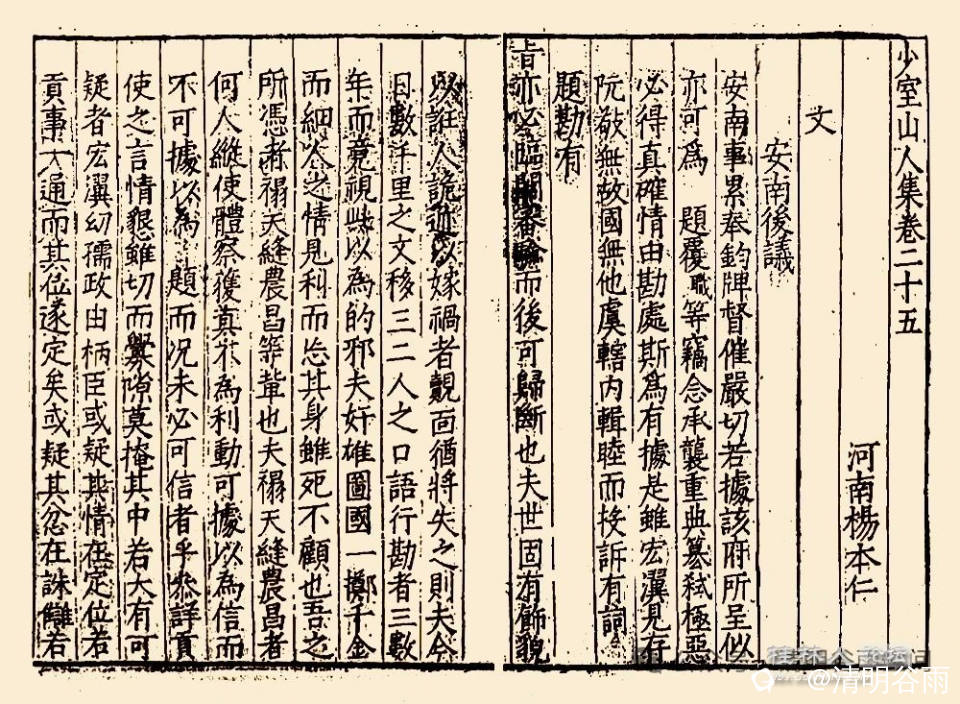 少室山人集卷二十五
河南楊本仁
文
安南後議
安南事累奉鈞牌督催嚴切若據該府所呈似
亦可為　題覆職等竊念承襲重典篡弑極惡
必得真確情由勘處斯為有據是雖宏瀷見存
阮敬無故國無他虞轄内輯睦而投訴有詞
題勘有
旨亦必臨關審驗而後可歸斷也夫世固有飾貌
以誑人詭迹以嫁禍者覿面猶將失之則夫今
日數千里之文移三二人之口語行勘者三數
年而竟視此以為的邪夫奸雄圖國一擲千金
而細人之情見利而忘其身雖死不顧也吾之
所憑者禤天縫農昌等輩也夫禤天縫農昌者
何人縱使體察獲真不為利動可據以為信而
不可據以為　題而况未必可信者乎叅詳貢
使之言情懇雖切而釁隙莫掩其中若大有可
疑者宏瀷幼孺政由柄臣或疑其情在定位若
貢事一通而其位遂定矣或疑其忿在誅讎若
桂林人论坛
@清明谷雨